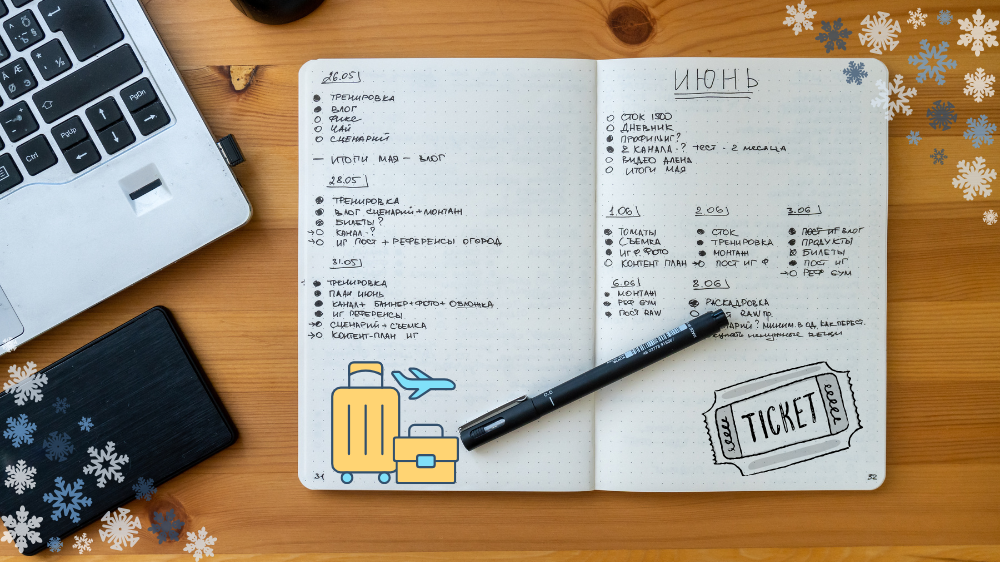 26.05
ТРЕНИРОВКА
ВЛОГ
ФИКС
ЧАЙ
СЦЕНАРИЙ
— ИТОГИ МАЯ — ВЛОГ
28.05
ТРЕНИРОВКА
ВЛОГ СЦЕНАРИЙ + МОНТАЖ
БИЛЕТЫ?
КАНАЛ - ?
ИГ ПОСТ + РЕФЕРЕНСЫ ОГОРОД
31.05
ТРЕНИРОВКА
ПЛАН ИЮНЬ
КАНАЛ + БАННЕР + ФОТО + ОБЛОЖКА
ИГ РЕФЕРЕНСЫ
СЦЕНАРИЙ + СЪЕМКА
КОНТЕНТ-ПЛАН ИГ
31
ИЮНЬ
СТОК 1500
ДНЕВНИК
ПРОФИЛИНГ?
2 КАНАЛА - ? ТЕСТ - 2 МЕСЯЦА
ВИДЕО АЛЕНА
ИТОГИ МАЯ
1.06
ТОМАТЫ
СЪЕМКА
ИГ Ф. ФОТО
КОНТЕНТ ПЛАН
2.06
СТОК
ТРЕНИРОВКА
МОНТАЖ
ПОСТ ИГ Ф
3.06
ПОСТ ИГ ВЛОГ
ПРОДУКТЫ
БИЛЕТЫ
ПОСТ ИГ
РЕФ GYM
6.06
МОНТАЖ
РЕФ GYM
ПОСТ RAW
8.06
РАСКАДРОВКА
RAW ПР.
МИНИМ. В ОД. КАК ПЕРЕСТ.
TICKET
32
Ctrl
PgUp
PgDn